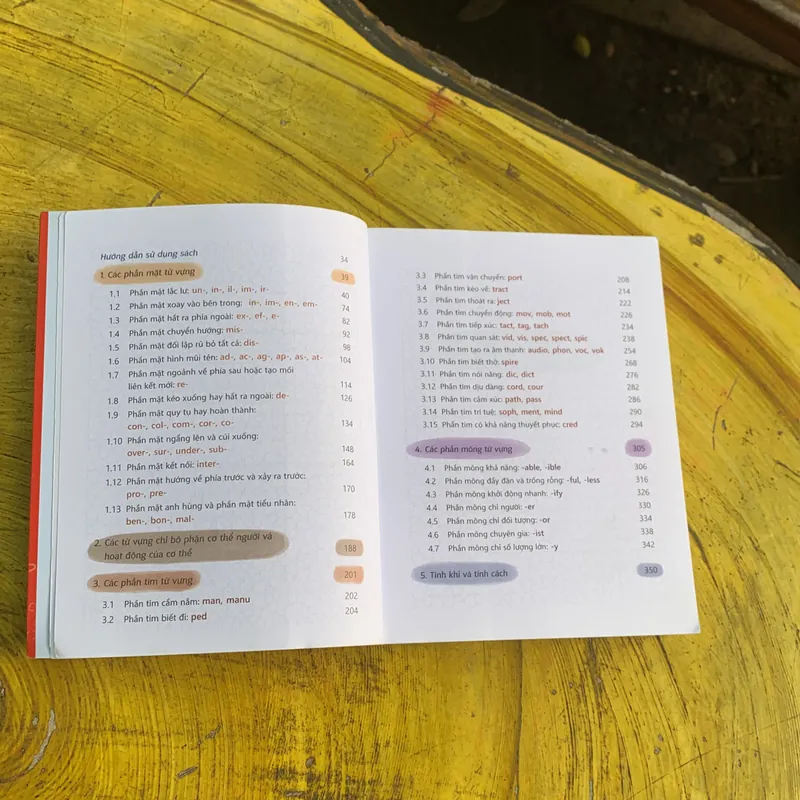 Hướng dẫn sử dụng sách 34
1. Các phần mặt từ vựng 39
1.1 Phần mặt lắc lư: un-, in-, il-, im-, ir- 40
1.2 Phần mặt xoay vào bên trong: in-, im-, en-, em- 74
1.3 Phần mặt hất ra phía ngoài: ex-, ef-, e- 82
1.4 Phần mặt chuyển hướng: mis- 92
1.5 Phần mặt đối lập rũ bỏ tất cả: dis- 98
1.6 Phần mặt hình mũi tên: ad-, ac-, ag-, ap-, as-, at- 104
1.7 Phần mặt ngoảnh về phía sau hoặc tạo mối
liên kết mới: re- 114
1.8 Phần mặt kéo xuống hay hất ra ngoài: de- 126
1.9 Phần mặt quy tụ hay hoàn thành:
con-, col-, com-, cor-, co- 134
1.10 Phần mặt ngẩng lên và cúi xuống:
over-, sur-, under-, sub- 148
1.11 Phần mặt kết nối: inter- 164
1.12 Phần mặt hướng về phía trước và xảy ra trước:
pro-, pre- 170
1.13 Phần mặt anh hùng và phần mặt tiểu nhân:
ben-, bon-, mal- 178
2. Các từ vựng chỉ bộ phận cơ thể người và
hoạt động của cơ thể 188
3. Các phần tim từ vựng 201
3.1 Phần tim cầm nắm: man, manu 202
3.2 Phần tim biết đi: ped 204
3.3 Phần tim vận chuyển: port 208
3.4 Phần tim kéo về: tract 214
3.5 Phần tim thoát ra: ject 222
3.6 Phần tim chuyển động: mov, mob, mot 226
3.7 Phần tim tiếp xúc: tact, tag, tach 234
3.8 Phần tim quan sát: vid, vis, spec, spect, spic 238
3.9 Phần tim tạo ra âm thanh: audio, phon, voc, vok 254
3.10 Phần tim biết thở: spire 268
3.11 Phần tim nói năng: dic, dict 276
3.12 Phần tim dịu dàng: cord, cour 282
3.13 Phần tim cảm xúc: path, pass 286
3.14 Phần tim trí tuệ: soph, ment, mind 290
3.15 Phần tim có khả năng thuyết phục: cred 294
4. Các phần mông từ vựng 305
4.1 Phần mông khả năng: -able, -ible 306
4.2 Phần mông đầy đặn và trống rỗng: -ful, -less 316
4.3 Phần mông khởi động nhanh: -ify 326
4.4 Phần mông chỉ người: -er 330
4.5 Phần mông chỉ đối tượng: -or 334
4.6 Phần mông chuyên gia: -ist 338
4.7 Phần mông chỉ số lượng lớn: -y 342
5. Tính khí và tính cách 350